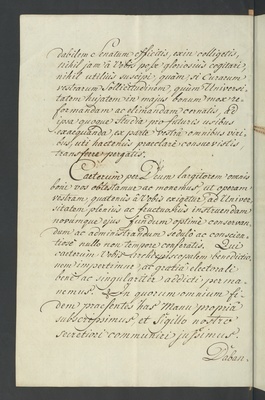 dabilem Senatum efficitis, exin colligetis,
nihil jam à Vobis posse gloriosius cogitari,
nihil utilius suscipi, quam si Curarum
vestrarum Sollicitudinem, quam Universi-
tatem hujatem in majus bonum mox re-
formandam ac elimandam coronatis, ad
ipsa quoque studia pro futuris usibus
exaequanda, ex parte vestra omnibus viri-
bus, uti hactenus praeclare consuevistis,
transferre pergatis.
Caeterum per Deum largitorem omnis
boni vos obtestamur ac monemus ut operam
vestram, quatenus à Vobis exigetur ad Univer-
sitatem plenius ac fructuosius instruendam
novumque ejus fundum optime conservan-
dum ac administrandum sedulo ac conscien-
tiose nullo non tempore conferatis. Qui
caeterum Vobis Archiepiscopalem benedictio-
nem impertimur ac gratia electorali
bene ac singulariter addicti perma-
nemus. In quorum omnium fi-
dem praesentes has Manu propria
subscripsimus, et Sigillo nostro
secretiori communiri jussimus.
Daban-